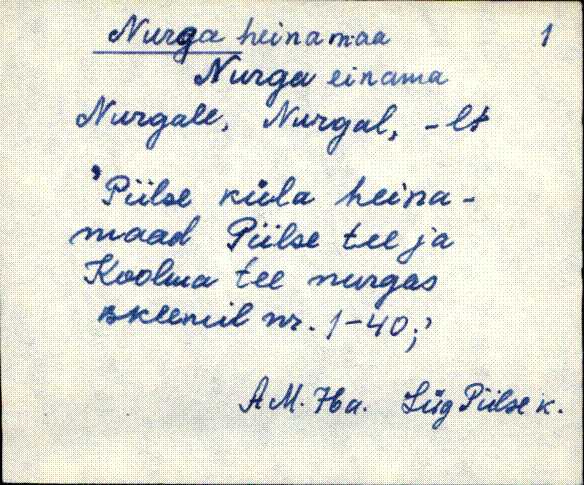 Nurga heinamaa 1
Nurga einama
Nurgale, Nurgal, -lt
"Piilse küla heina-
maad Piilse tee ja
Koolma tee nurgas
skeemil nr. 1-40;"
A M. Hõa. Lüg Piilse k.